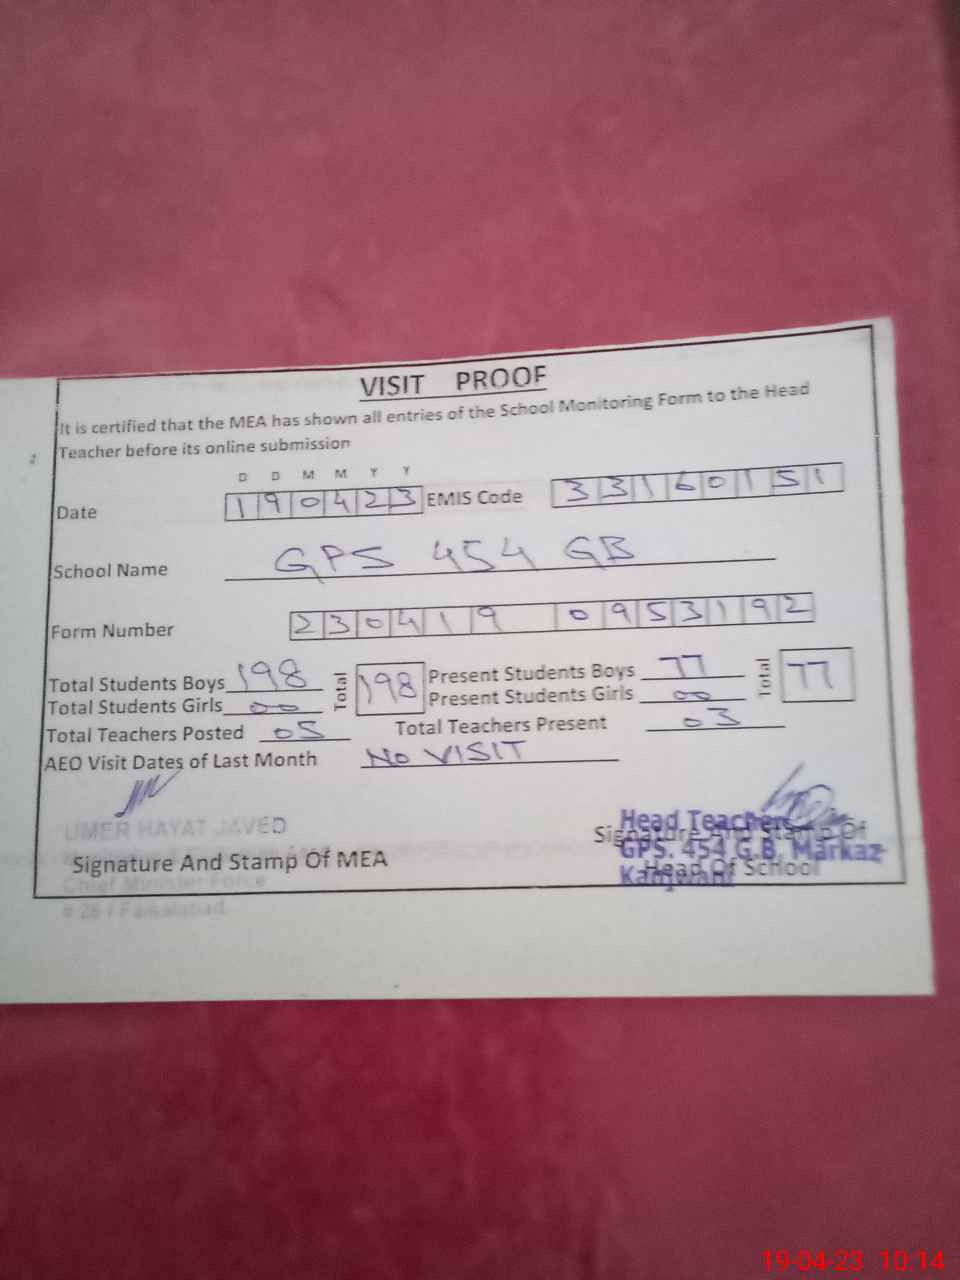 VISIT PROOF
It is certified that the MEA has shown all entries of the School Monitoring Form to the Head
Teacher before its online submission
D D M M Y Y
Date 190423 EMIS Code 33160151
School Name GPS 454 GB
Form Number 230419 0953192
Total Students Boys 198 Total 198 Present Students Boys 77 Total 77
Total Students Girls 00 Present Students Girls 00
Total Teachers Posted 05 Total Teachers Present 03
AEO Visit Dates of Last Month NO VISIT
UMER HAYAT JAVED
Signature And Stamp Of MEA
Chief Minister Force
# 26 / Faisalabad
Head Teachers
GPS. 454 G.B. Markaz
Kanjwani
Signature And Stamp Of
Head Of School
19-04-23 10:14